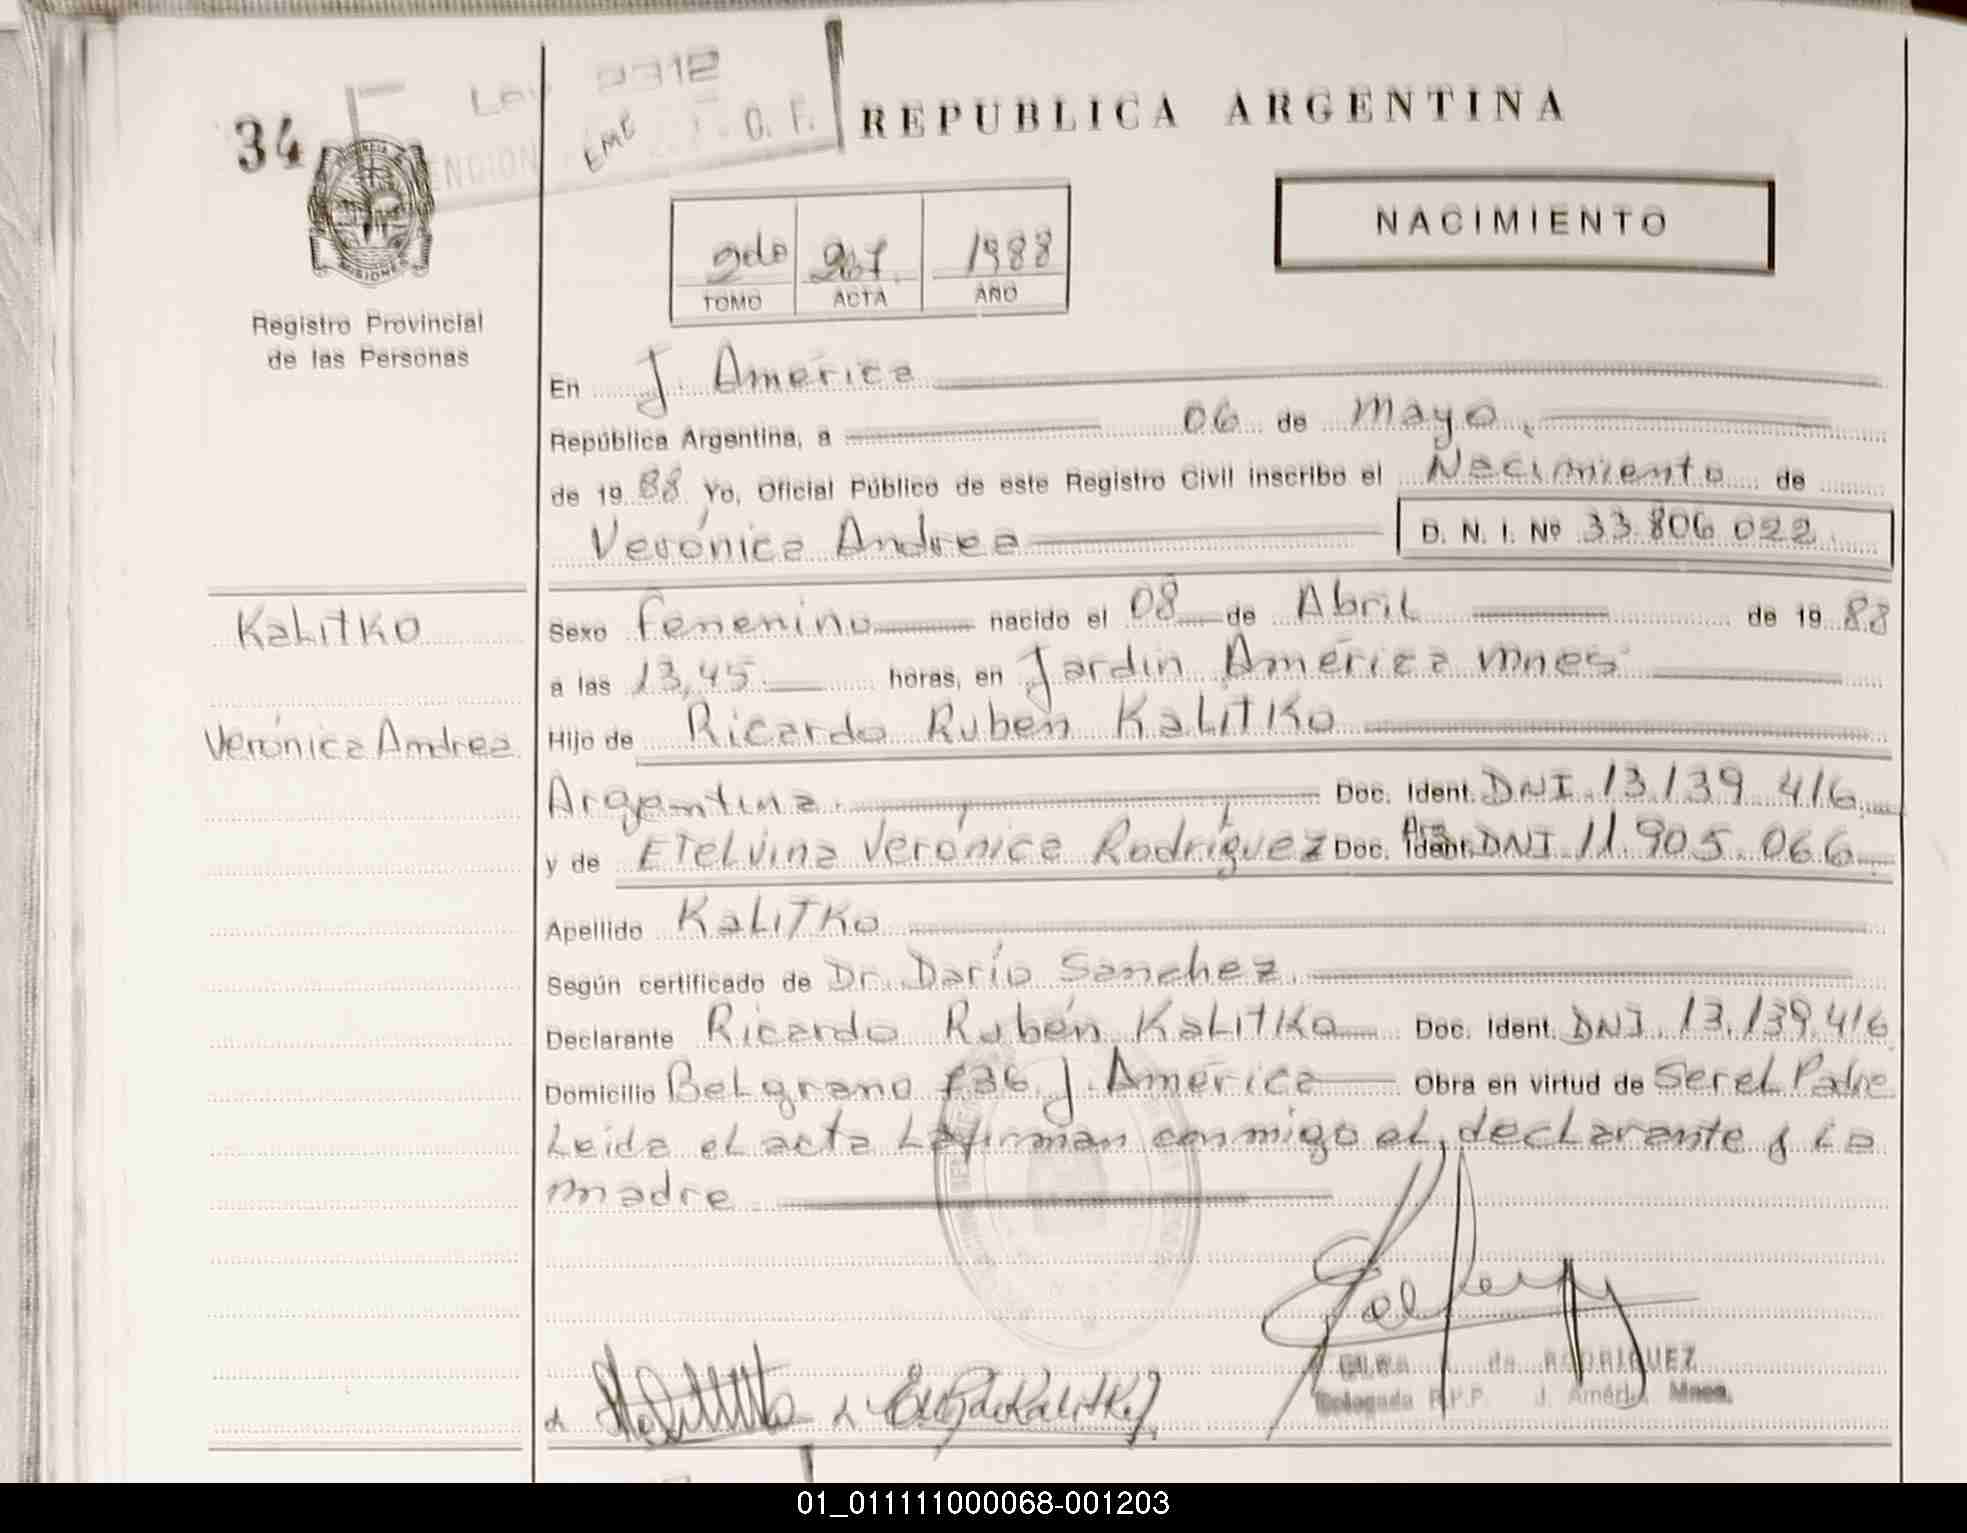 34
LEY 2312
REPUBLICA ARGENTINA
NACIMIENTO
2do 1988
TOMO ACTA AÑO
MISIONES
Registro Provincial
de las Personas
En J. América
República Argentina, a 06 de Mayo
de 1988 Yo, Oficial Público de este Registro Civil inscribo el Nacimiento de
Verónica Andrea D. N. I. Nº 33.806.022
Kalitko
Sexo femenino nacido el 08 de Abril de 1988
a las 13,45 horas, en Jardín América Mnes
Verónica Andrea
Hijo de Ricardo Ruben Kalitko
Argentina Doc. Ident. DNI 13.139.416
y de Etelvina Verónica Rodríguez Arg. Doc. Ident. DNI 11.905.066
Apellido Kalitko
Según certificado de Dr. Darío Sanchez
Declarante Ricardo Rubén Kalitko Doc. Ident. DNI 13.139.416
Domicilio Belgrano J. América Obra en virtud de Ser el Padre
Leida el acta La firman conmigo el declarante y La
madre
de RODRIGUEZ
Delegada R.P.P. J. Améri. Mnes.
01_011111000068-001203